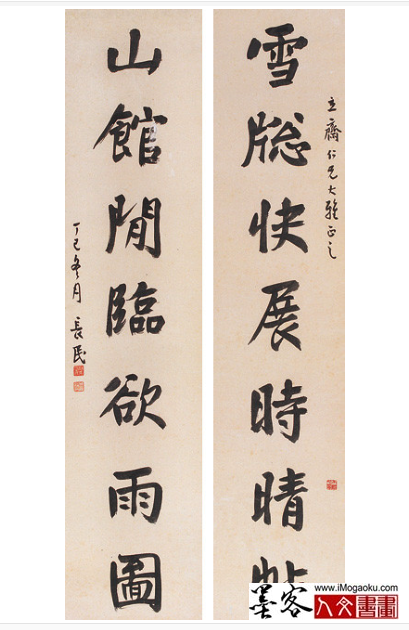 立齋仁兄大雅正之
雪牕快展時晴帖
山館閒臨欲雨圖
丁巳冬月 長民
www.iMogaoku.com
墨客
人文書畫